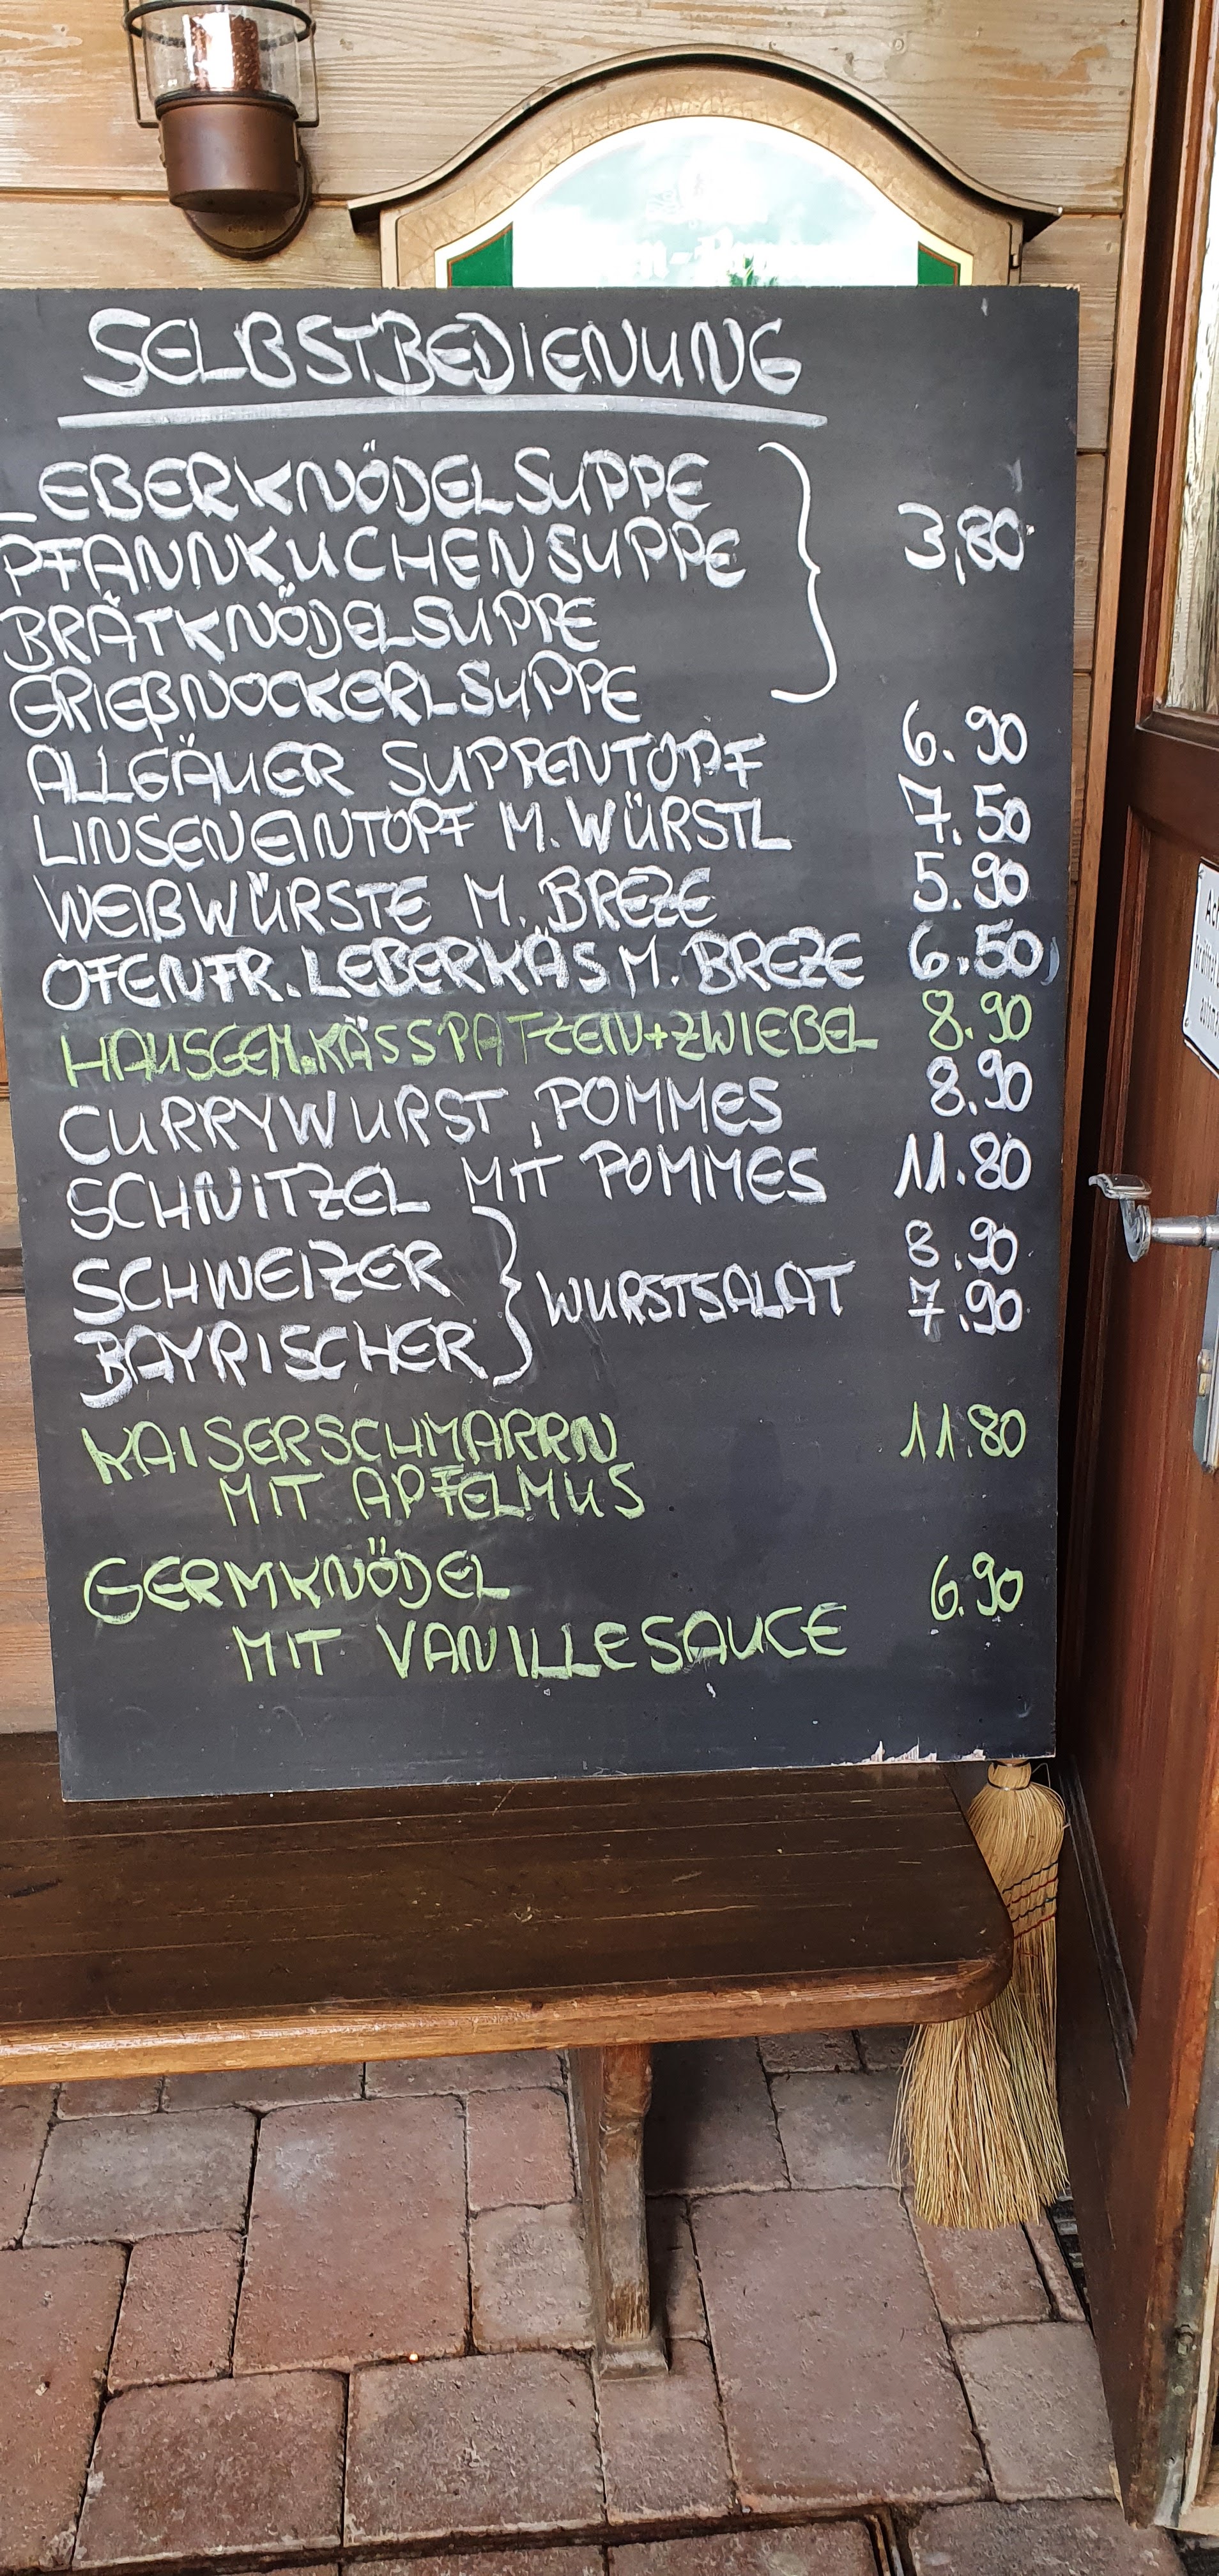 SELBSTBEDIENUNG
LEBERKNÖDELSUPPE
PFANNKUCHENSUPPE 3,80
BRÄTKNÖDELSUPPE
GRIEßNOCKERLSUPPE
ALLGÄUER SUPPENTOPF 6.90
LINSENEINTOPF M. WÜRSTL 7.50
WEIßWÜRSTE M. BREZE 5.90
OFENFR. LEBERKÄS M. BREZE 6.50
HAUSGEM. KÄSSPATZEN + ZWIEBEL 8.90
CURRYWURST, POMMES 8.90
SCHNITZEL MIT POMMES 11.80
SCHWEIZER 8.90
WURSTSALAT
BAYRISCHER 7.90
KAISERSCHMARRN 11.80
MIT APFELMUS
GERMKNÖDEL 6.90
MIT VANILLESAUCE